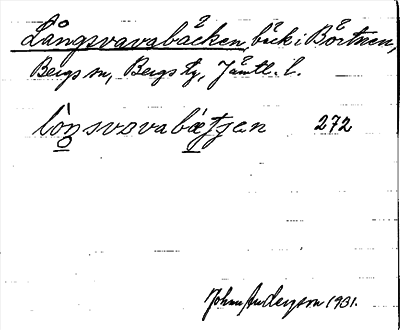 Långsvavabäcken, bäck i Börtnen,
Bergs sn, Bergs tg, Jämtl. l.
272
Johan Anderson 1931.